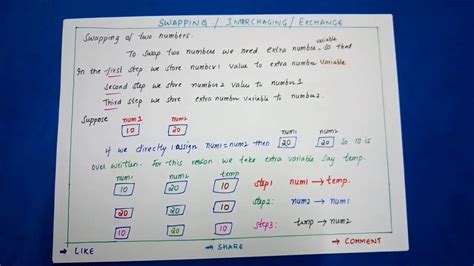 SWAPPING / INTERCHAGING / EXCHANGE
Swapping of two numbers:
To swap two numbers we need extra number variable. So that
In the first step we store number1 value to extra number variable
Second step we store number2 value to number1
Third step we store extra number variable to number2.
Suppose num1 num2
10 20
if we directly assign num1=num2 then num1 20 num2 20 so 10 is
over written. For this reason we take extra variable say temp.
num1 num2 temp
10 20 10 step1 num1 → temp.
20 20 10 step2: num2 → num1
20 10 10 step3: temp → num2
→ LIKE → SHARE → COMMENT